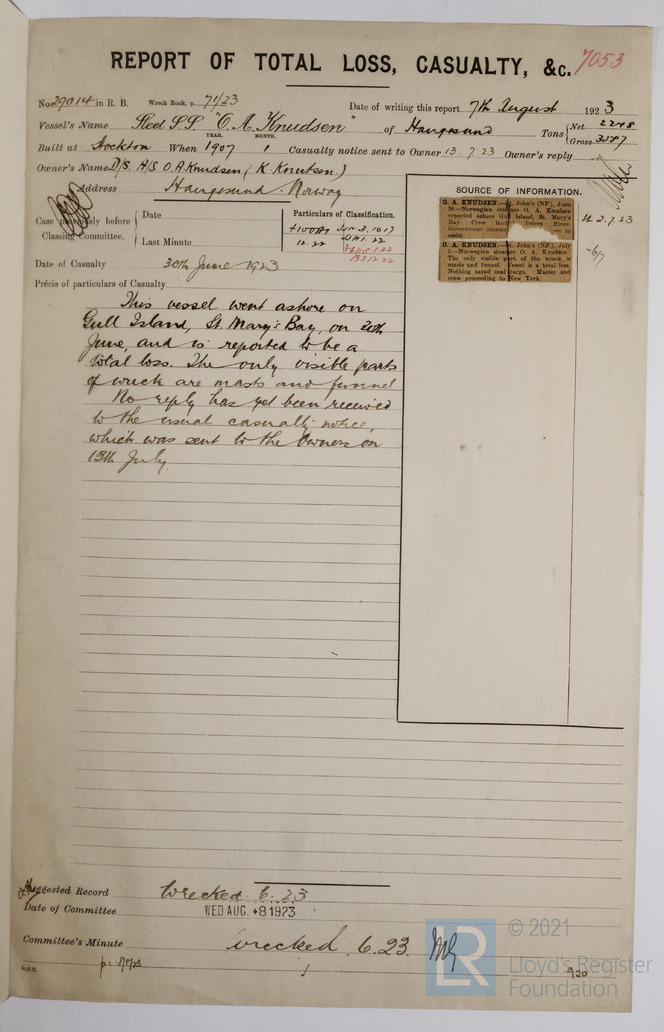 REPORT OF TOTAL LOSS, CASUALTY, &c. 7053
No. 29014 in R. B. Wreck Book, p. 71/23
Date of writing this report 7th August 1923
Vessel's Name Steel S.S. "O. A. Knudsen" of Haugesund Tons Net 2248 Gross
YEAR. MONTH.
Built at Stockton When 1907 Casualty notice sent to Owner 13.7.23 Owner's reply
Owner's Name D/S A/S O.A. Knudsen (K. Knutsen)
Address Haugesund. Norway
Case previously before Classing Committee.
Date
Last Minute
Particulars of Classification.
+100A1
12.22
Date of Casualty 30th June 1923
Précis of particulars of Casualty
This vessel went ashore on
Gull Island, St. Mary's Bay, on 30th
June, and is reported to be a
total loss. The only visible parts
of wreck are masts and funnel
No reply has yet been received
to the usual casualty notice,
which was sent to the Owners on
13th July.
SOURCE OF INFORMATION.
O. A. KNUDSEN.— St. John's (NF.), June
30.—Norwegian steamer O. A. Knudsen
reported ashore Gull Island, St. Mary's
Bay. Crew Peters River.
Government steamer to
assist.
2.7.23
O. A. KNUDSEN.— St. John's (NF.), July
—Norwegian steamer O. A. Knudsen
The only visible part of the wreck is
masts and funnel. Vessel is a total loss.
Nothing saved coal cargo. Master and
crew proceeding to New York.
-6/7
Suggested Record Wrecked 6.23
Date of Committee WED AUG. 8 1923
Committee's Minute wrecked 6.23.
920
LR
© 2021
Lloyd's Register
Foundation